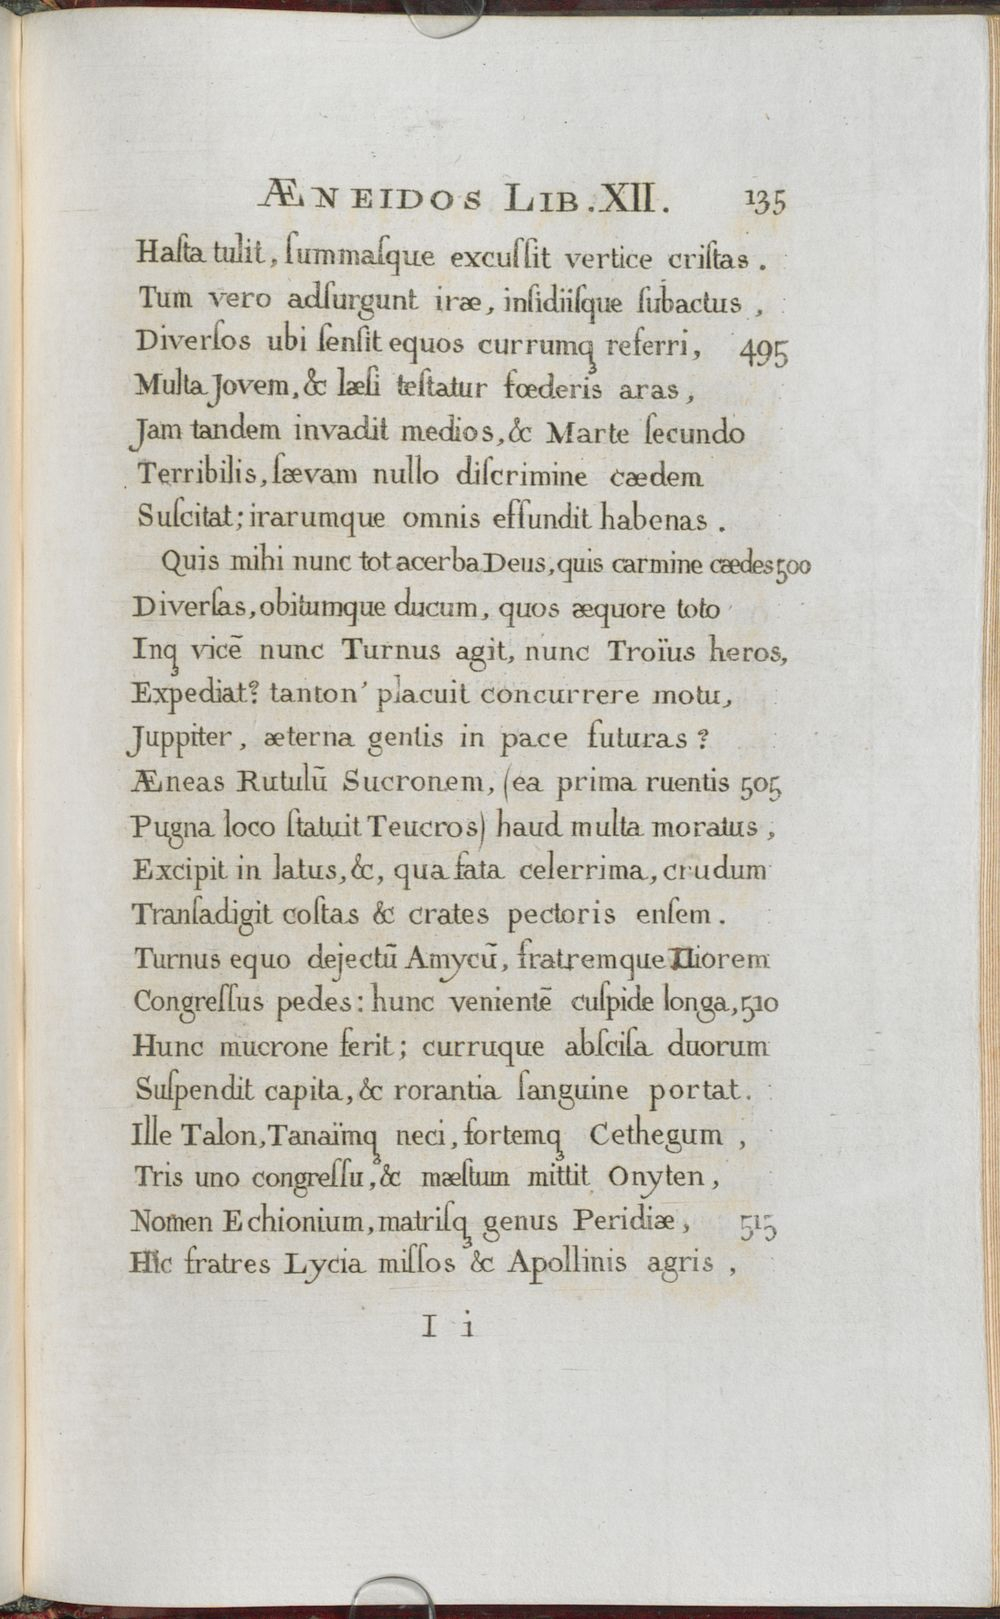 ÆNEIDOS LIB. XII. 135
Haſta tulit, ſummaſque excuſſit vertice criſtas.
Tum vero adſurgunt iræ, inſidiiſque ſubactus,
Diverſos ubi ſenſit equos currumq̨ referri, 495
Multa Jovem, & læſi teſtatur fœderis aras,
Jam tandem invadit medios, & Marte ſecundo
Terribilis, ſævam nullo diſcrimine cædem
Suſcitat; irarumque omnis effundit habenas.
Quis mihi nunc tot acerba Deus, quis carmine cædes 500
Diverſas, obitumque ducum, quos æquore toto
Inq̨ vicē nunc Turnus agit, nunc Troïus heros,
Expediat? tanton' placuit concurrere motu,
Juppiter, æterna gentis in pace futuras?
Æneas Rutulū Sucronem, (ea prima ruentis 505
Pugna loco ſtatuit Teucros) haud multa moratus,
Excipit in latus, &, qua fata celerrima, crudum
Tranſadigit coſtas & crates pectoris enſem.
Turnus equo dejectū Amycū, fratremque Diorem
Congreſſus pedes: hunc venientē cuſpide longa, 510
Hunc mucrone ferit; curruque abſciſa duorum
Suſpendit capita, & rorantia ſanguine portat.
Ille Talon, Tanaïmq̨ neci, fortemq̨ Cethegum,
Tris uno congreſſu, & mæſtum mittit Onyten,
Nomen Echionium, matriſq̨ genus Peridiæ, 515
Hic fratres Lycia miſſos & Apollinis agris,
I i